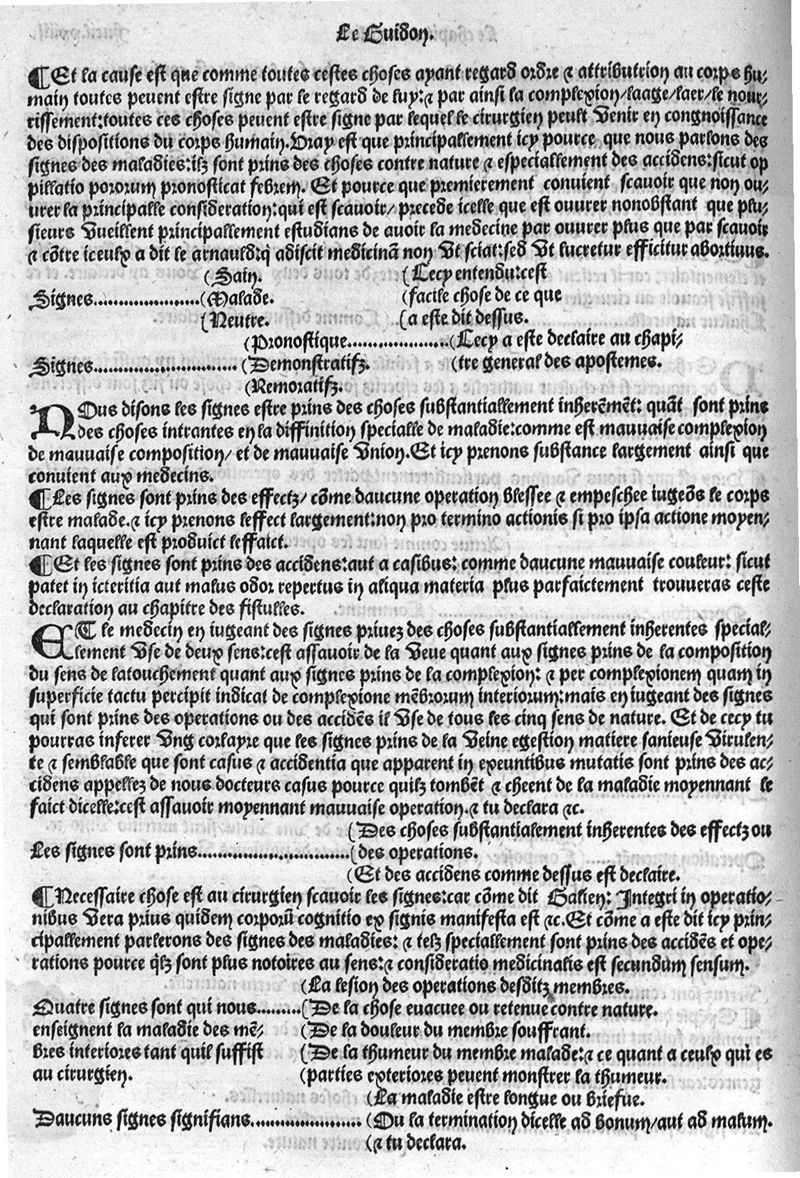 Le Guidon.
¶Et la cause est que comme toutes cestes choses ayant regard ordre ⁊ attribution au corps hu⸗
main toutes peuent estre signe par le regard de luy:⁊ par ainsi la complexion/laage/laer/le nour⸗
rissement:toutes ces choses peuent estre signe par lequel le cirurgien peult venir en congnoissance
des dispositions du corps humain.Vray est que principallement icy pource que nous parlons des
signes des maladies:ilz sont prins des choses contre nature ⁊ especiallement des accidens:sicut op
pillatio pororum pronosticat febrem. Et pource que premierement conuient scauoir que non ou⸗
urer la principalle consideration:qui est scauoir/ precede icelle que est ouurer nonobstant que plu⸗
sieurs vueillent principallement estudians de auoir la medecine par ouurer plus que par scauoir
⁊ cōtre iceulx a dit le arnauld:q̄ adiscit medicinā non vt sciat:sed vt lucretur efficitur abortiuus.
(Sain. (Cecy entendu:cest
Signes....................(Malade. (facile chose de ce que
(Neutre. (a este dit dessus.
(Pronostique...................(Cecy a este declaire au chapi⸗
Signes...........................(Demonstratifz. (tre general des apostemes.
(Remoratifz.
NOus disons les signes estre prins des choses substantiallement inherēmēt: quāt sont prins
des choses intrantes en la diffinition specialle de maladie:comme est mauuaise complexion
de mauuaise composition/ et de mauuaise vnion.Et icy prenons substance largement ainsi que
conuient aux medecins.
¶Les signes sont prins des effectz/ cōme daucune operation blessee ⁊ empeschee iugeōs le corps
estre malade.⁊ icy prenons leffect largement:non pro termino actionis si pro ipsa actione moyen⸗
nant laquelle est produict leffaict.
¶Et les signes sont prins des accidens:aut a casibus: comme daucune mauuaise couleur: sicut
patet in icteritia aut malus odor repertus in aliqua materia plus parfaictement trouueras ceste
declaration au chapitre des fistulles.
ET le medecin en iugeant des signes priuez des choses substantiallement inherentes special⸗
lement vse de deux sens:cest assauoir de la veue quant aux signes prins de la composition
du sens de latouchement quant aux signes prins de la complexion: ⁊ per complexionem quam in
superficie tactu percipit indicat de complexione mēbrorum interiorum:mais en iugeant des signes
qui sont prins des operations ou des accidēs il vse de tous les cinq sens de nature. Et de cecy tu
pourras inferer vng corlayre que les signes prins de la veine egestion matiere sanieuse virulen⸗
te ⁊ semblable que sont casus ⁊ accidentia que apparent in exeuntibus mutatis sont prins des ac⸗
cidens appellez de nous docteurs casus pource quilz tombēt ⁊ cheent de la maladie moyennant le
faict dicelle:cest assauoir moyennant mauuaise operation.⁊ tu declara ⁊c.
(Des choses substantialement inherentes des effectz ou
Les signes sont prins...........................(des operations.
(Et des accidens comme dessus est declaire.
¶Necessaire chose est au cirurgien scauoir les signes:car cōme dit Galien: Integri in operatio⸗
nibus vera prius quidem corporū cognitio ex signis manifesta est ⁊c.Et cōme a este dit icy prin⸗
cipallement parlerons des signes des maladies: ⁊ telz speciallement sont prins des accidēs et ope⸗
rations pource q̄lz sont plus notoires au sens:⁊ consideratio medicinalis est secundum sensum.
(La lesion des operations desditz membres.
Quatre signes sont qui nous.........(De la chose euacuee ou retenue contre nature.
enseignent la maladie des mē⸗ (De la douleur du membre souffrant.
bres interiores tant quil suffist (De la thumeur du membre malade:⁊ ce quant a ceulx qui es
au cirurgien. (parties exteriores peuent monstrer la thumeur.
(La maladie estre longue ou briefue.
Daucuns signes signifians......................(Ou la termination dicelle ad bonum/aut ad malum.
(⁊ tu declara.